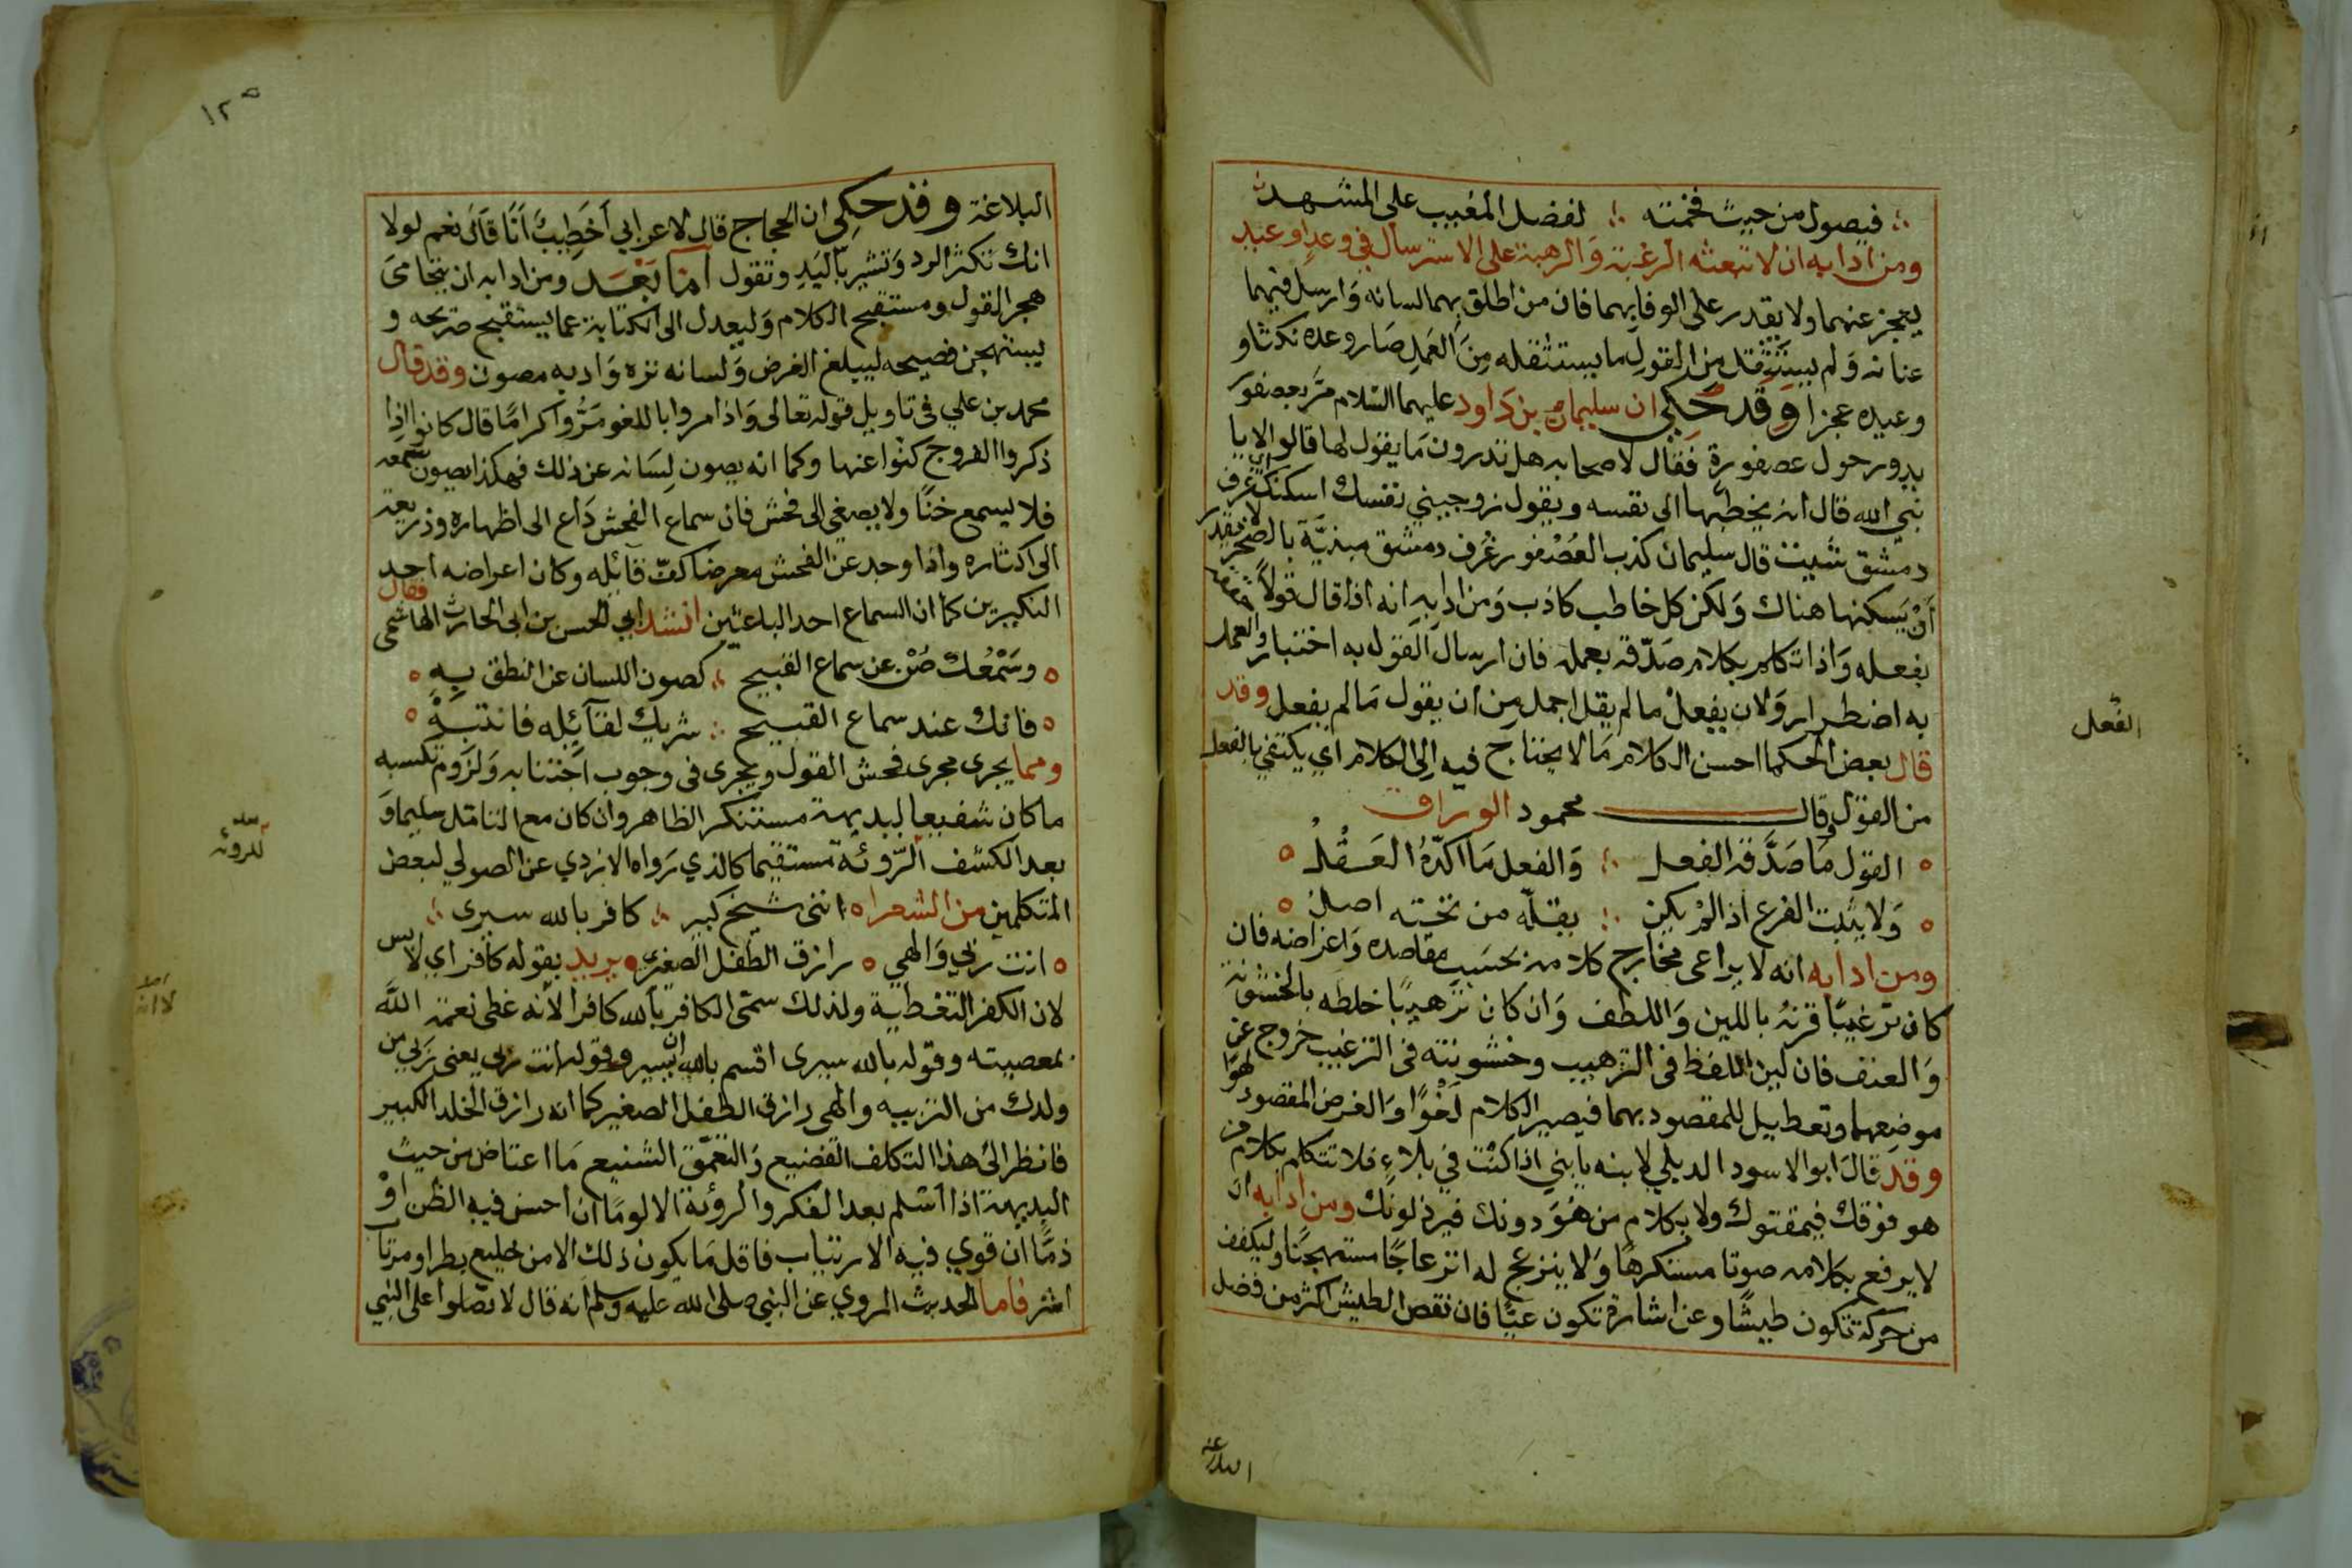 فيصول من حيث فخمته ؞ لفضل المغيب على المشهد
ومن ادابه ان لا تبعثه الرغبة وَالرهبة على الاسترسال في وعدٍ او عيد
يعجز عنهما ولا يقدر على الوفا بهما فان من اطلق بهما لسانه وَارسل فيهما
عنانه وَلم يستثقل من القولِ ما يستثقله مِنَ العَملِ صَار وعده نكثا و
وعيده عجزا وَقَد حُكِي ان سليمان بن دَاود عليهما السّلام مَرّ بعصفور
يدور حول عصفورة فقَال لاصحابه هل تدرون مَا يقول لها قالوا لا يا
نبي الله قال انه يخطبها الى نفسه ويقول زوجيني نفسك اسكنك اي غرف
دمشق شيت قال سليمان كذب العُصْفور غرَف دمشق مبنيَّة بالصخر لا يقدر
أنْ يَسكنها هناك وَلكن كل خاطب كاذب وَمن ادابِهِ انه اذا قال قولاً حققه
بفعله وَاذا تكلم بكلام صَدّقه بعمله فان ارسال القول به اختبار والعمل
به اضطرار وَلان يفعل ما لم يقل اجمل مِن ان يقول مَا لم يفعل وقد
الفعل
قال بعض الحكما احسن الكلام مَا لا يحتاج فيه اِلى الكلام اي يكتفي بالفعل
من القول وقال محمود الوراق
القول مَا صَدَّقه الفعل ؞ وَالفعل مَا اكدّهُ العَقْلُ
وَلا يثبت الفرع اذا لمْ يكن ؞ يقلّه من تحته اصل
ومن ادابه انه لا يراعى مخارج كلامه بحسَب مقاصده وَاغراضه فان
كان ترغيبًا قرنهُ باللين وَاللطف وَان كان ترهيبًا خلطه بالخشونة
وَالعنف فان لين اللفظ في الترهيب وخشونته في الترغيب خروج عن
موضِعهما وتعطيل للمقصود بهما فيصير الكلام لَغْوًا وَالغرض المقصود لهوًا
وقد قالَ ابو الاسود الديلي لابنه يا بني اذا كنْت في بلاءٍ فلا تتكلم بكلام من
هو فوقك فيمقتوك ولا بكلام من هُوَ دونك فيرذلونك ومن ادابه ان
لا يرفع بكلامه صوتا مستكرهًا وَلا ينزعج له انزعاجًا مستهجنًا وليكفف
من حَركة تكون طيشًا وعن اشارة تكون عيًّا فان نقص الطيش اكثر من فضل
البلاغة
١٢٥
البلاغة وقد حكي ان الحجاج قال لاعرابي أخَطِيبٌ أنَا قالَ نعم لولا
انك تكثر الرد وَتشير باليَدِ وتقول أمّا بَعْد ومن ادابه ان يتحامىَ
هجر القول ومستقبح الكلام وَليعدل الى الكناية عما يستقبح صَريحه و
يستهجن فصيحه ليبلغ الغرض وَلسانه نزه وَادبه مصون وقد قال
محمد بن علي في تاويل قوله تعالى وَاذا مروا باللغو مَرُّوا كرامًا قال كانوا اذِا
ذكروا الفروج كنْوا عنها وكما انه يصون لِسَانه عن ذلك فهكذا يصون سمعه
فلا يسمع خنًا ولا يصغي الى فحش فان سماع الفحش دَاع الى اظهاره وذريعة
الى اكثاره واذا وجد عن الفحش معرضًا كفّ قائله وكان اعراضه احد
النكيرين كما ان السماع احد الباعثين انشد ابي الحسن بن ابي الحارث الهاشمى فقال
وسَمْعُكَ صُنْ عن سماع القبيح ؞ كصون اللسان عن النطق بِهِ
فانك عند سماع القبيح ؞ شريك لقآئِله فانتبهْ
ومما يجرى مجرى فحش القول ويجرى في وجوب اجتنابه وَلزَوم تكسبه
ما كان شفيعا لبديهة مستنكر الظاهر وان كان مع التامل سليما وَ
للروئة
بعد الكشف الرّوئة مستقيما كالذي رَواه الازدي عن الصولي لبعض
المتكلمين من الشعرا انني شيخ كبير ؞ كافر بالله سيرى ؞
انت ربي وَالهي رازق الطفل الصغير يريد بقوله كافر اي لابس
لان الكفر التغطية ولذلك سمّى الكافر بالله كافرا لأنه غطى نعمة اللَّه
بمعصيته وقوله بالله سيرى اقسم بالله ان يسير وقوله انت ربي يعني رَبي من
ولدك من التربيه والهي رازق الطفل الصغير كما انه رازق الخلد الكبير
فانظر الى هذا التكلف الفضيع وَالتعمّق الشنيع مَا اعتاض من حيث
البديهة اذا اسَلم بعد الفكر والرؤية الا لومًا ان احسن فيه الظن اوْ
ذمًّا ان قوي فيه الارتياب فاقل مَا يكون ذلك الا من خليع بطر او مرتاب
اشر فاما الحديث المروي عن النبي صلى الله عليه وسلم انه قال لا تصّلوا على النبي